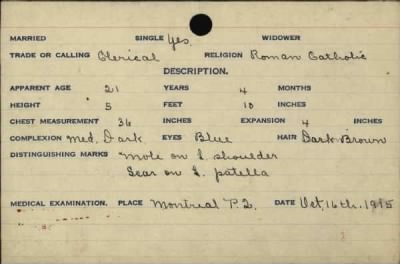 MARRIED SINGLE Yes. WIDOWER
TRADE OR CALLING Clerical RELIGION Roman Catholic
DESCRIPTION.
APPARENT AGE 21 YEARS 4 MONTHS
HEIGHT 5 FEET 10 INCHES
CHEST MEASUREMENT 36 INCHES EXPANSION 4 INCHES
COMPLEXION Med. Dark EYES Blue HAIR Dark Brown
DISTINGUISHING MARKS Mole on L. shoulder
Scar on L. patella
MEDICAL EXAMINATION. PLACE Montreal P.Q. DATE Oct. 16th. 1915